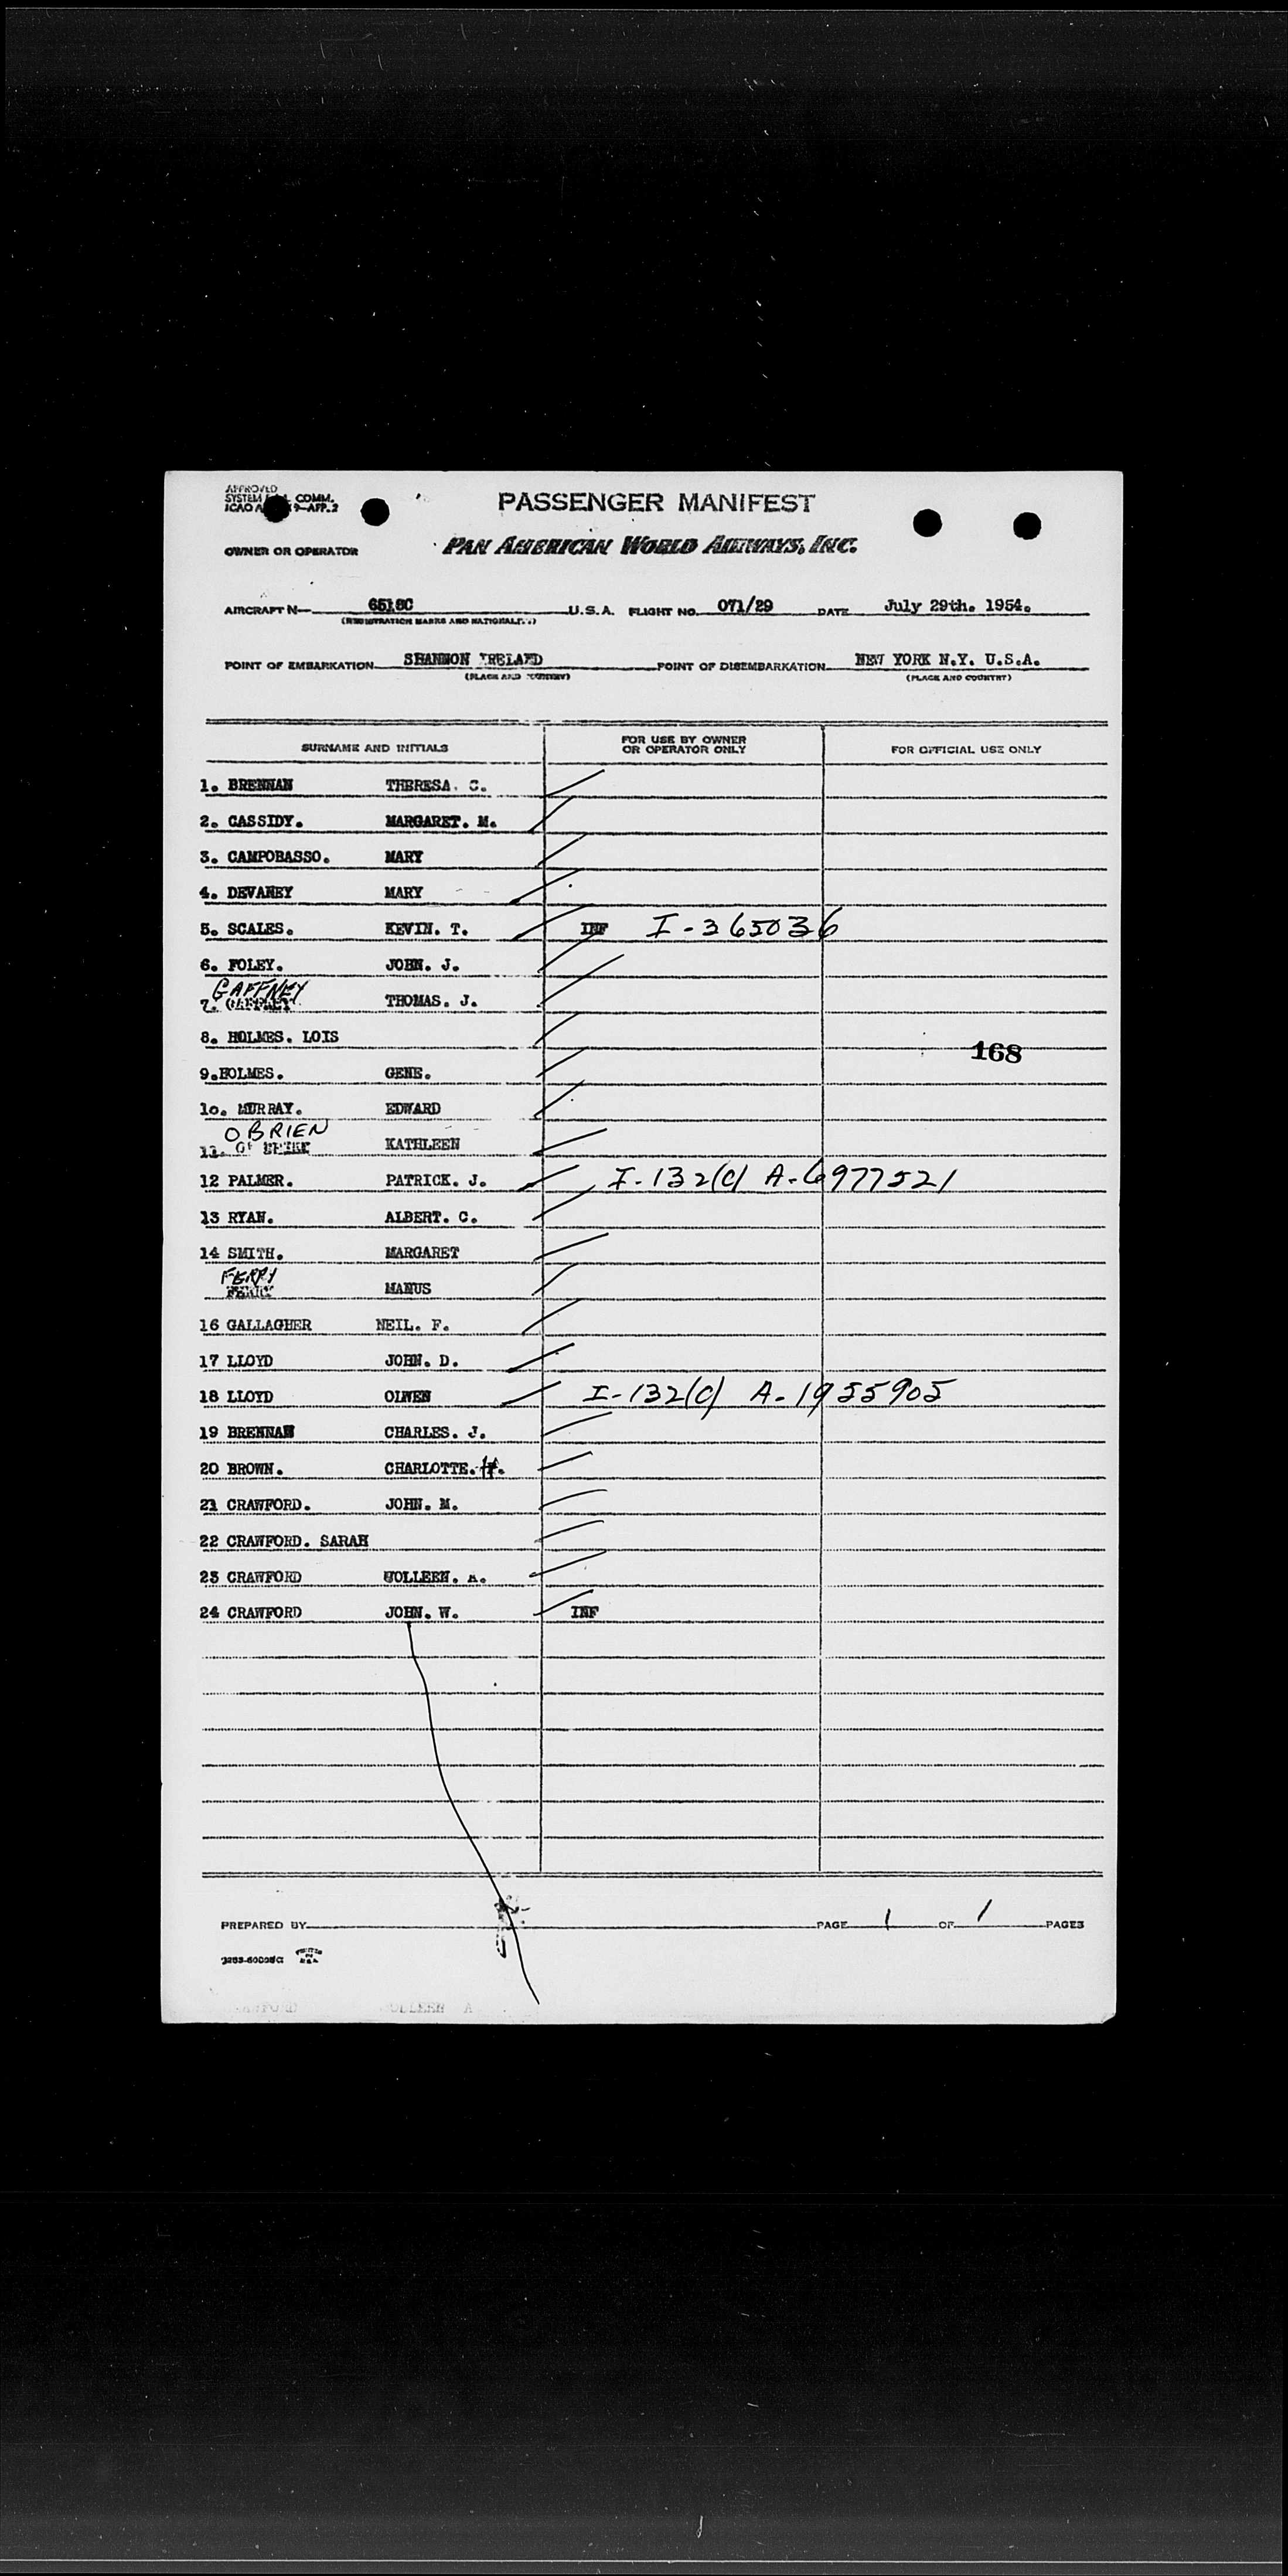 APPROVED
SYSTEM COMM.
ICAO A 9-APP.2
PASSENGER MANIFEST
OWNER OR OPERATOR PAN AMERICAN WORLD AIRWAYS, INC.
AIRCRAFT N— 6518C U.S.A. FLIGHT NO. 071/29 DATE July 29th. 1954.
(REGISTRATION MARKS AND NATIONALITY)
POINT OF EMBARKATION SHANNON IRELAND POINT OF DISEMBARKATION NEW YORK N.Y. U.S.A.
(PLACE AND COUNTRY) (PLACE AND COUNTRY)
SURNAME AND INITIALS FOR USE BY OWNER OR OPERATOR ONLY FOR OFFICIAL USE ONLY
1. BRENNAN THERESA. C.
2. CASSIDY. MARGARET. M.
3. CAMPOBASSO. MARY
4. DEVANEY MARY
5. SCALES. KEVIN. T. INF I-365036
6. FOLEY. JOHN. J.
GAFFNEY
7. THOMAS. J.
8. HOLMES. LOIS
168
9.HOLMES. GENE.
1o. MURRAY. EDWARD
O BRIEN
11. KATHLEEN
12 PALMER. PATRICK. J. I-132(c) A-6977521
13 RYAN. ALBERT. C.
14 SMITH. MARGARET
FERRY
MANUS
16 GALLAGHER NEIL. F.
17 LLOYD JOHN. D.
18 LLOYD OLWEN I-132(c) A-1955905
19 BRENNAN CHARLES. J.
20 BROWN. CHARLOTTE. H.
21 CRAWFORD. JOHN. M.
22 CRAWFORD. SARAH
23 CRAWFORD COLLEEN. A.
24 CRAWFORD JOHN. W. INF
PREPARED BY PAGE 1 OF 1 PAGES
PRINTED IN U.S.A.
OLLEEN A